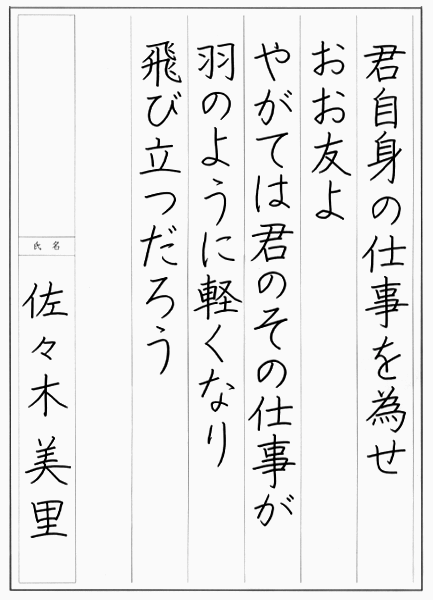 君自身の仕事を為せ
おお友よ
やがては君のその仕事が
羽のように軽くなり
飛び立つだろう
氏名
佐々木美里